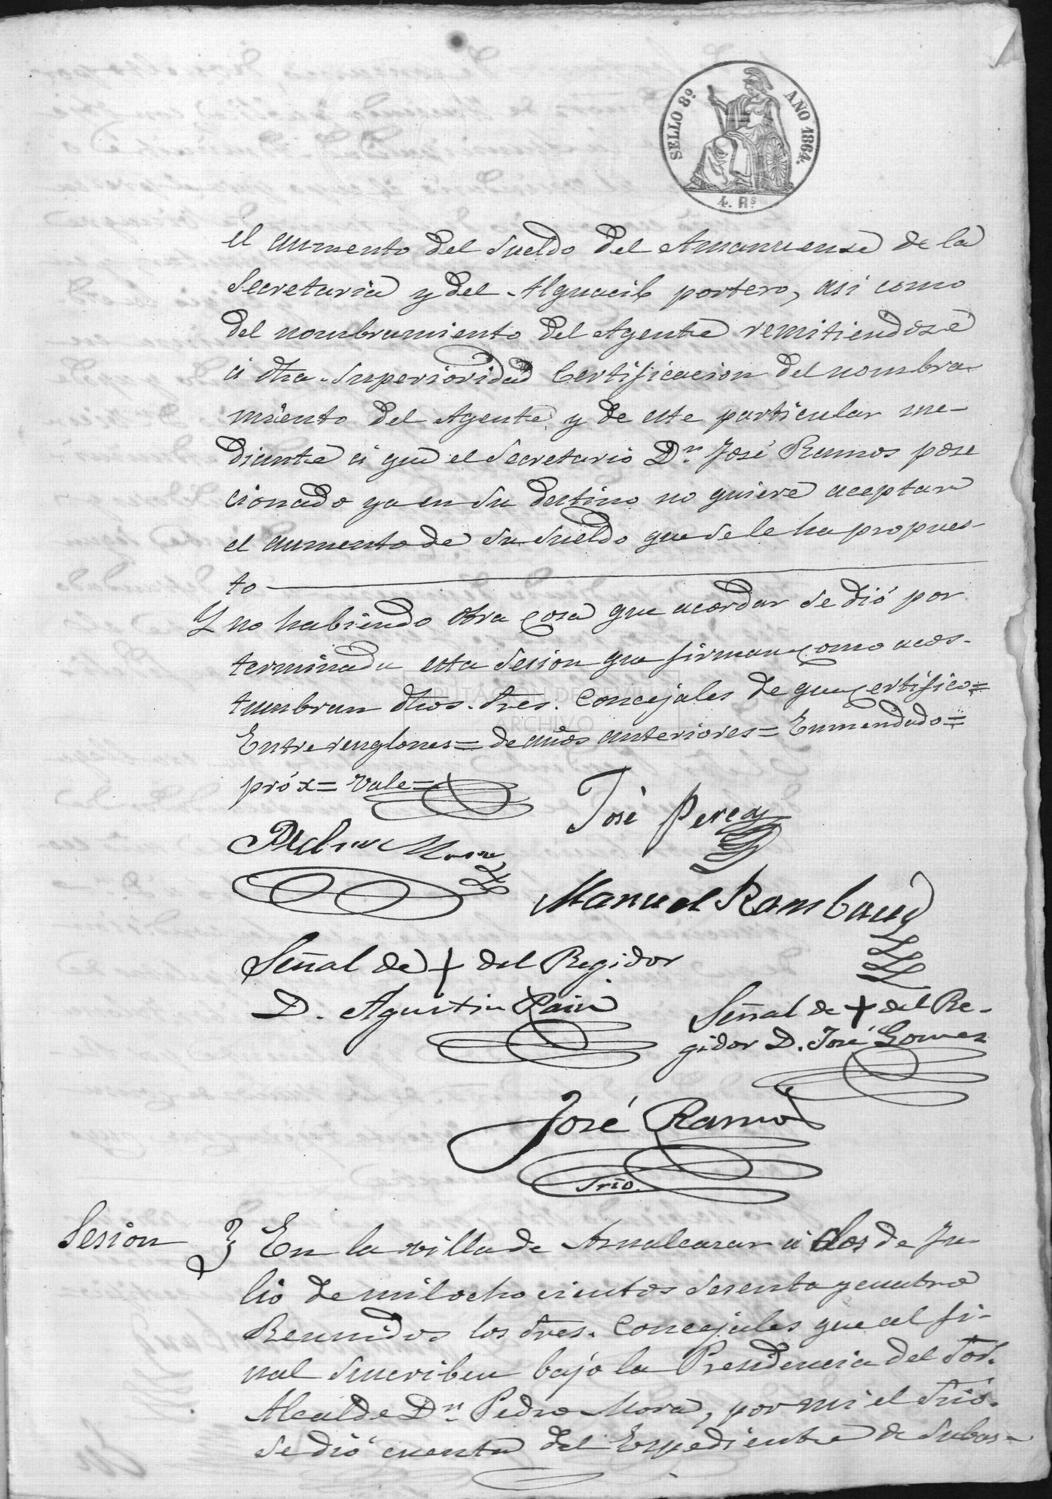 SELLO 8º AÑO 1864.
4. Rs
el aumento del sueldo del Amanuense de la
Secretaria y del Alguacil portero, asi como
del nombramiento del Agente remitiendose
á dha. Superioridad Certificacion del nombra-
miento del Agente y de este particular me-
diante á que el Secretario Dn. José Ramos pose
cionado ya en su destino no quiere aceptar
el aumento de su sueldo que se le ha propues-
to
Y no habiendo otra cosa que acordar se dió por
terminada esta sesion que firman como acos-
tumbran dhos. Sres. Concejales de que certifico=
Entrerenglones= de años anteriores= Enmendado=
próx= Vale=
José Perea
Manuel Rambaud
Señal de + del Regidor
D. Agustin
Señal de + del Re-
gidor D. José Gomez
José Ramos
Srio.
Sesion
En la villa de Aznalcazar á dos de Ju-
lio de mil ochocientos sesenta y cuatro
Reunidos los Sres. Concejales que al fi-
nal suscriben bajo la Presidencia del Sor.
Alcalde Dn. Pedro Mora, por mi el Srio.
se dió cuenta del Expediente de Subas-